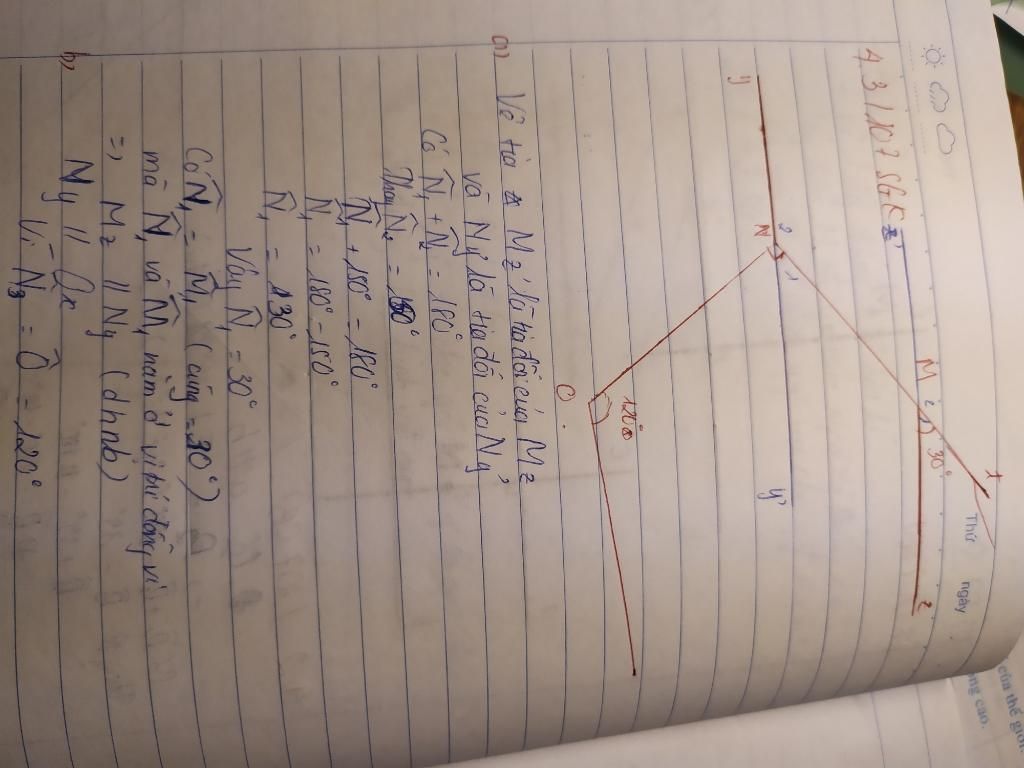 Thứ ngày
4.3/107 SGK
z'
M
2
1
30°
t
z
y
N
2
1
y'
120°
O
a) Vẽ tia Mz' là tia đối của Mz
và Ny' là tia đối của Ny,
Có N̂₁ + N̂₂ = 180°
Thay N̂₂ = 150°
N̂₁ + 150° = 180°
N̂₁ = 180° - 150°
N̂₁ = 130°
Vậy N̂₁ = 30°
Có N̂₁ = M̂₁ (cùng = 30°)
mà N̂₁ và M̂₁ nằm ở vị trí đồng vị
=> Mz // Ny (dhnb)
b) Ny // Ox
Vì N̂₃ = Ô = 120°
của thế giới
ng cao.